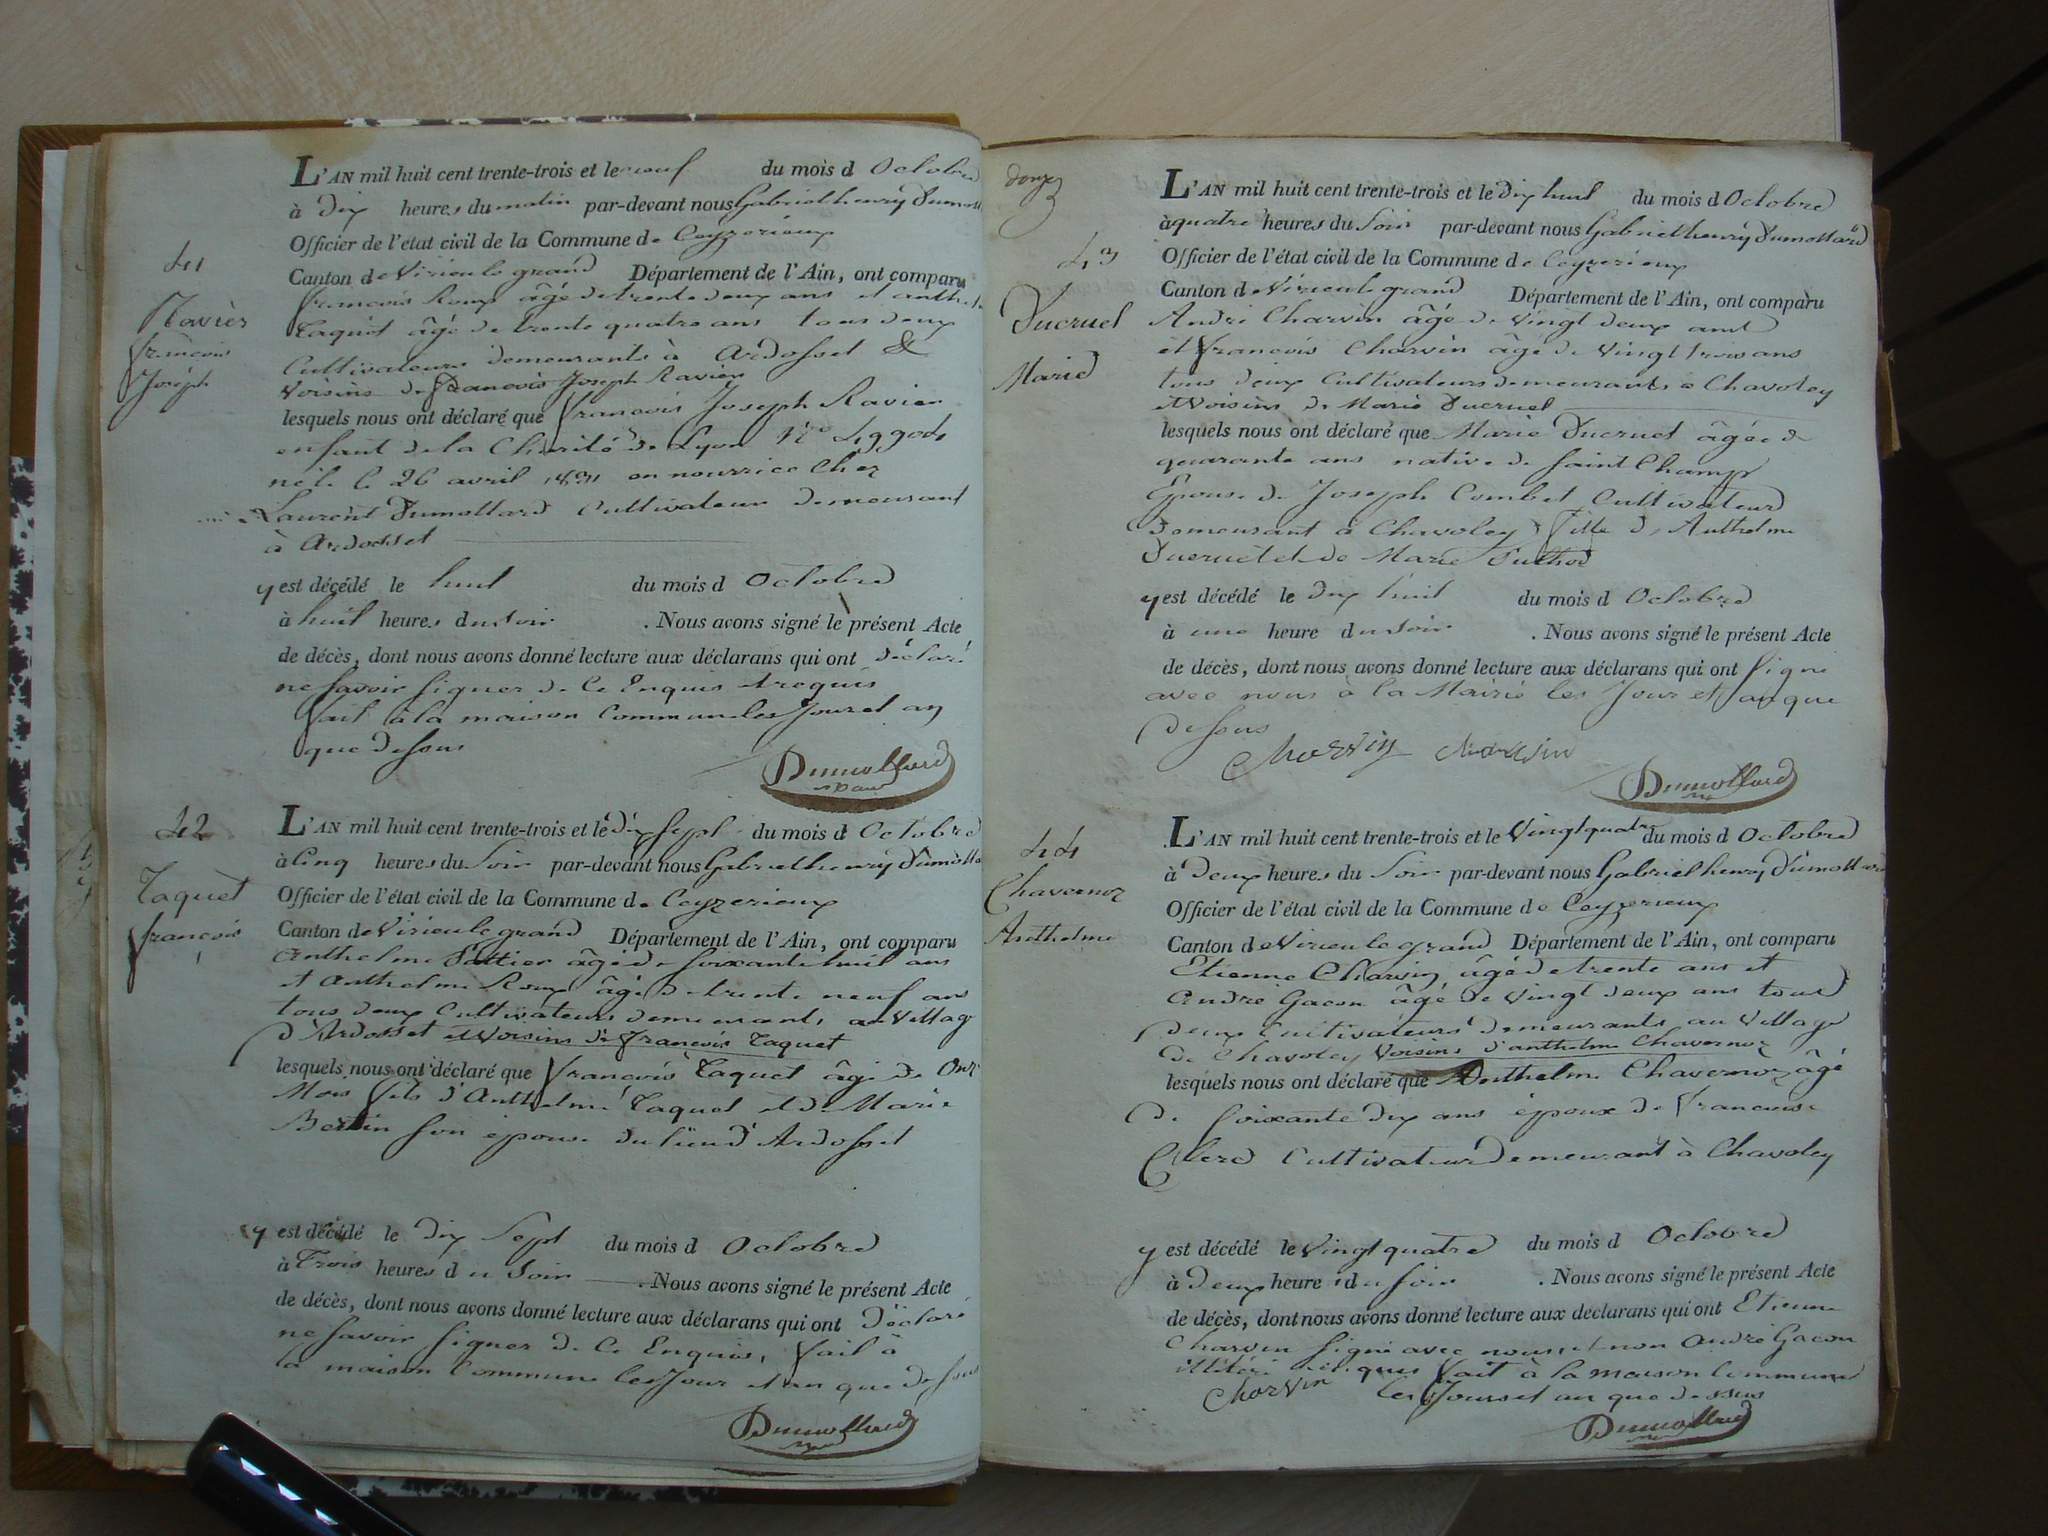 41
Ravier
françois
Joseph
L'AN mil huit cent trente-trois et le neuf du mois d Octobre
à dix heures du matin par-devant nous Gabriel henry Dumoll
Officier de l'état civil de la Commune de Ceyzerieux
Canton de Virieu le grand Département de l'Ain, ont comparu
françois Roux âgé de trente deux ans et anthelme
Taquet âgé de trente quatre ans tous deux
Cultivateurs demeurants à Ardosset &
Voisins de françois Joseph Ravier
lesquels nous ont déclaré que françois Joseph Ravier
enfant de la Charité de Lyon N°
né le 26 avril 1831 en nourrice Chez
Laurent Dumollard Cultivateur demeurant
à Ardosset
y est décédé le huit du mois d Octobre
à huit heures du soir . Nous avons signé le présent Acte
de décès, dont nous avons donné lecture aux déclarans qui ont déclaré
ne savoir signer de Ce Enquis et requis
fait à la maison Commune les Jour et an
que dessus
Dumollard
42
Taquet
françois
L'AN mil huit cent trente-trois et le dix sept du mois d Octobre
à Cinq heures du Soir par-devant nous Gabriel henry Dumolla
Officier de l'état civil de la Commune de Ceyzerieux
Canton de Virieu le grand Département de l'Ain, ont comparu
anthelme Pottier âgé de soixante huit ans
et anthelme Roux âgé de trente neuf ans
tous deux Cultivateurs demeurants au Village
d'Ardosset et Voisins de françois Taquet
lesquels nous ont déclaré que françois Taquet âgé de Onze
Mois fils d'Anthelme Taquet et de Marie
Bertin son épouse du lieu d'Ardosset
y est décédé le dix Sept du mois d Octobre
à Trois heures du Soir . Nous avons signé le présent Acte
de décès, dont nous avons donné lecture aux déclarans qui ont Déclaré
ne savoir signer de Ce Enquis, fait à
la maison Commune les Jour et an que dessus
Dumollard
douze
43
Ducruet
Marie
L'AN mil huit cent trente-trois et le dix huit du mois d Octobre
à quatre heures du Soir par-devant nous Gabriel henry Dumollard
Officier de l'état civil de la Commune de Ceyzerieux
Canton de Virieu le grand Département de l'Ain, ont comparu
André Charvin âgé de Vingt deux ans
et françois Charvin âgé de Vingt trois ans
tous deux Cultivateurs demeurants à Chavoley
et Voisins de Marie Ducruet
lesquels nous ont déclaré que Marie Ducruet âgée de
quarante ans native de Saint Champ
Epouse de Joseph Combet Cultivateur
demeurant à Chavoley & fille d'Anthelme
Ducruet et de Marie Puthod
y est décédé le dix huit du mois d Octobre
à une heure du soir . Nous avons signé le présent Acte
de décès, dont nous avons donné lecture aux déclarans qui ont signé
avec nous à la Mairie les Jour et an que
dessus
Charvin Charvin
Dumollard
44
Chavernoz
Anthelme
L'AN mil huit cent trente-trois et le Vingt quatre du mois d Octobre
à Deux heures du Soir par-devant nous Gabriel henry Dumollard
Officier de l'état civil de la Commune de Ceyzerieux
Canton de Virieu le grand Département de l'Ain, ont comparu
Etienne Charvin âgé de trente ans et
André Gacon âgé de Vingt deux ans tous
deux Cultivateurs demeurants au Village
de Chavoley Voisins d'anthelme Chavernoz
lesquels nous ont déclaré que Anthelme Chavernoz âgé
de soixante dix ans époux de françoise
Clerc Cultivateur demeurant à Chavoley
y est décédé le Vingt quatre du mois d Octobre
à Deux heures du soir . Nous avons signé le présent Acte
de décès, dont nous avons donné lecture aux déclarans qui ont Etienne
Charvin signé avec nous et non André Gacon
fait à la maison Commune
Charvin les Jours et an que dessus
Dumollard